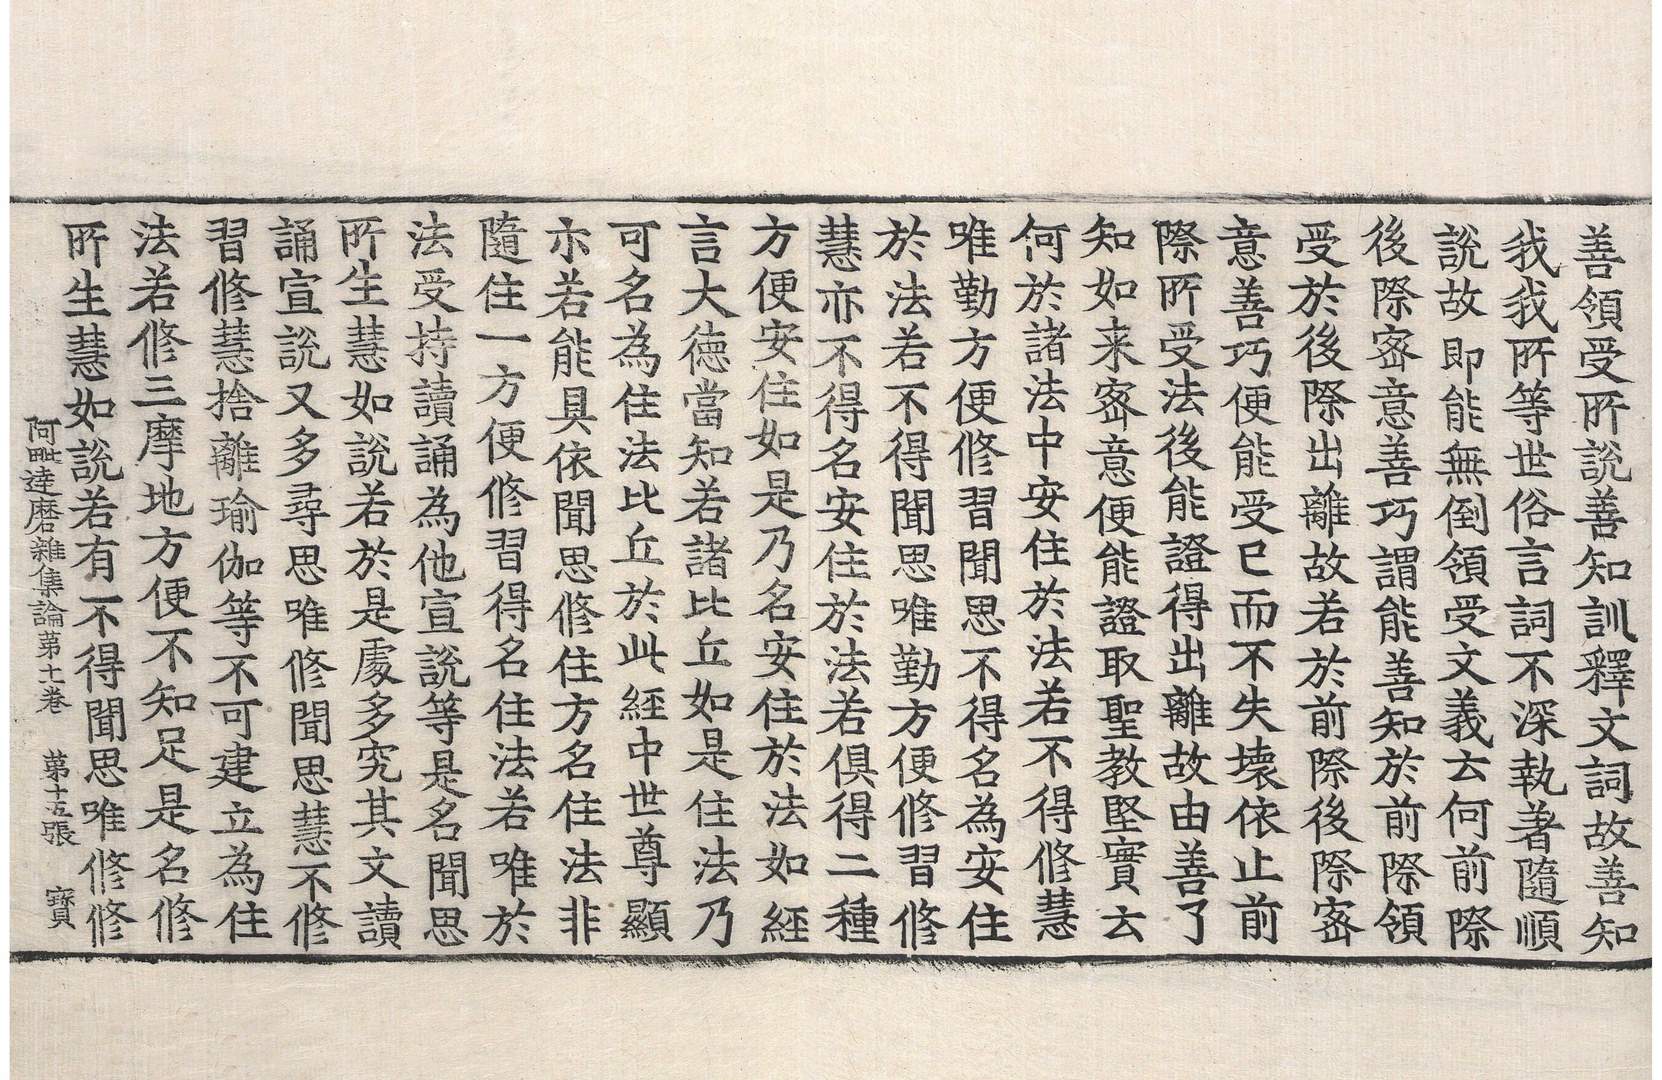 善領受所說善知訓釋文詞故善知
我我所等世俗言詞不深執著隨順
說故即能無倒領受文義云何前際
後際密意善巧謂能善知於前際領
受於後際出離故若於前際後際密
意善巧便能受已而不失壞依止前
際所受法後能證得出離故由善了
知如来密意便能證取聖教堅實云
何於諸法中安住於法若不得修慧
唯勤方便修習聞思不得名為安住
於法若不得聞思唯勤方便修習修
慧亦不得名安住於法若俱得二種
方便安住如是乃名安住於法如經
言大德當知若諸比丘如是住法乃
可名為住法比丘於此經中世尊顯
示若能具依聞思修住方名住法非
隨住一方便修習得名住法若唯於
法受持讀誦為他宣說等是名聞思
所生慧如說若於是處多究其文讀
誦宣說又多尋思唯修聞思慧不修
習修慧捨離瑜伽等不可建立為住
法若修三摩地方便不知足是名修
所生慧如說若有不得聞思唯修修
阿毗達磨雜集論第十一卷 第十五張 寳